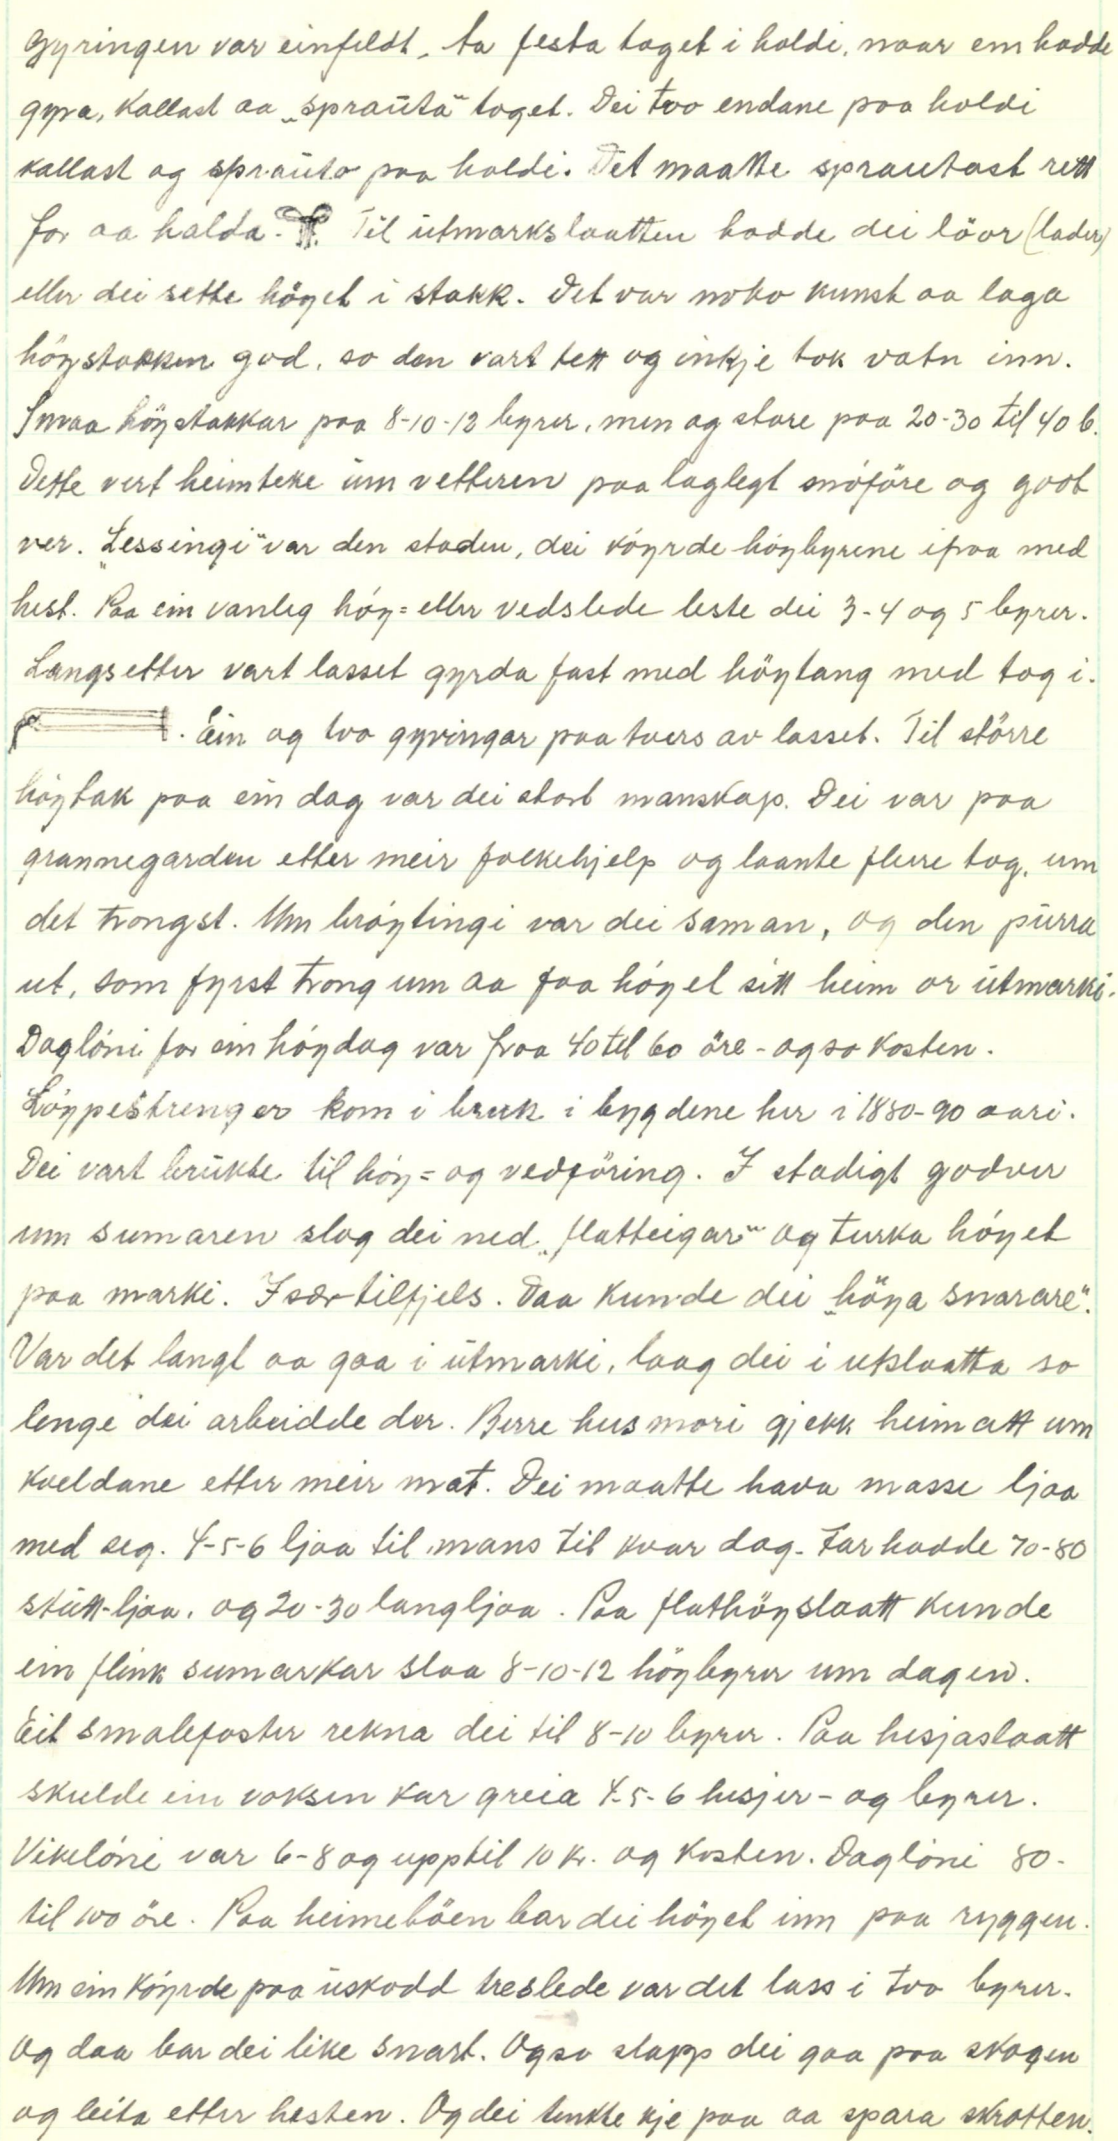 gyringen var einfeldt, ta festa toget i holdi, naar em hadde
gyra, kallast aa „sprauta" toget. Dei tvo endane paa holdi
kallast og sprauto paa holdi. Det maatte sprautast rett
for aa halda. Til utmarkslaatten hadde dei löor (lador)
eller dei sette höyet i stakk. Det var noko kunst aa laga
höystakken god, so den vart tett og inkje tok vatn inn.
Smaa höystakkar paa 8-10-12 byrer, men og store paa 20-30 til 40 b.
Dette vert heimteke um vetteren paa laglegt snöföre og godt
ver. „Lessingi" var den staden, dei köyrde höybyrene ifraa med
hest. Paa ein vanleg höy= eller vedslede leste dei 3-4 og 5 byrer.
Langsetter vart lasset gyrda fast med höytang med tog i.
. Ein og tvo gyringar paa tvers av lasset. Til större
höytak paa ein dag var dei stort manskap. Dei var paa
grannegarden etter meir folkehjelp og laante fleire tog, um
det trongst. Um bröytingi var dei saman, og den purra
ut, som fyrst trong um aa faa höyet sitt heim or utmarki.
Daglöni for ein höydag var fraa 40 til 60 öre - ogso kosten.
Löypestrenger kom i bruk i bygdene her i 1880-90 aari.
Dei vart brukte til höy= og vedföring. I stadigt godver
um sumaren slog dei ned „flatteigar" og turka höyet
paa marki. Især tilfjels. Daa kunde dei „höya snarare".
Var det langt aa gaa i utmarki, laag dei i utslaatta so
lenge dei arbeidde der. Berre husmori gjekk heim att um
kveldane etter meir mat. Dei maatte hava masse ljaa
med seg. 4-5-6 ljaa til mans til kvar dag. Far hadde 70-80
stutt-ljaa, og 20-30 langljaa. Paa flathöyslaatt kunde
ein flink sumarkar slaa 8-10-12 höybyrer um dagen.
Eit smalefoster rekna dei til 8-10 byrer. Paa hesjaslaatt
skulde ein voksen kar greia 4-5-6 hesjer - og byrer.
Vikelöni var 6-8 og upptil 10 kr. og kosten. Daglöni 80-
til 100 öre. Paa heimeböen bar dei höyet inn paa ryggen.
Um ein köyrde paa uskodd treslede var det lass i tvo byrer.
Og daa bar dei like snart. Ogso slapp dei gaa paa skogen
og leita etter hesten. Og dei tenkte kje paa aa spara skrotten.